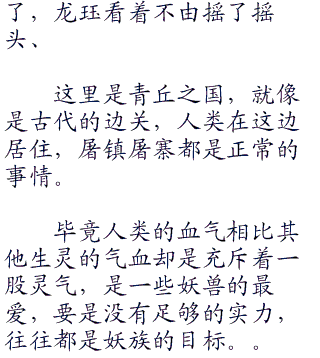 了，龙珏看着不由摇了摇
头、
这里是青丘之国，就像
是古代的边关，人类在这边
居住，屠镇屠寨都是正常的
事情。
毕竟人类的血气相比其
他生灵的气血却是充斥着一
股灵气，是一些妖兽的最
爱，要是没有足够的实力，
往往都是妖族的目标。。